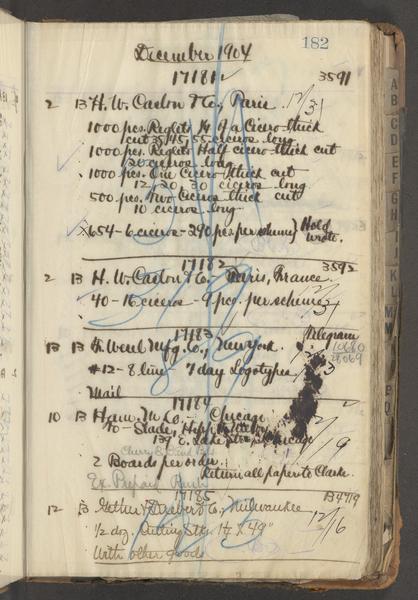 182
December 1904
17181 3591
2 B H. W. Caslon & Co., Paris 12/31
1000 pcs. Reglets 1/4 of a Cicero thick
cut 35, 45, 55 ciceros long
1000 pcs. Reglets Half Cicero thick cut
120 ciceros long
1000 pcs. One Cicero thick cut
12, 20, 30 ciceros long
500 pcs. Two Cicero thick cut
10 ciceros long
x654 - 6 ciceros - 290 pcs. per scheme } Hold
wrote.
17182 3592
2 B H. W. Caslon & Co. - Paris, France.
40 - 16 ciceros - 9 pcs. per scheme 12/31
17183 Telegram
13 B Mfg. Co., New York. 28069
#12 - 8 line 7 day Logotypes 12/3
Mail
17184
10 B Ham. M. Co. - Chicago
70 - Slader,
139 E. Lake Street Chicago 12/9
2 Boards per order.
Return all papers to Clark.
Ex. Prepay Rush
17185 B4719
12 B & Co., Milwaukee
1/2 doz. Cutting Stks. 1 1/4 X 49" 12/16
With other goods
A
B
C
D
E
F
G
H
I
J
K
L
M